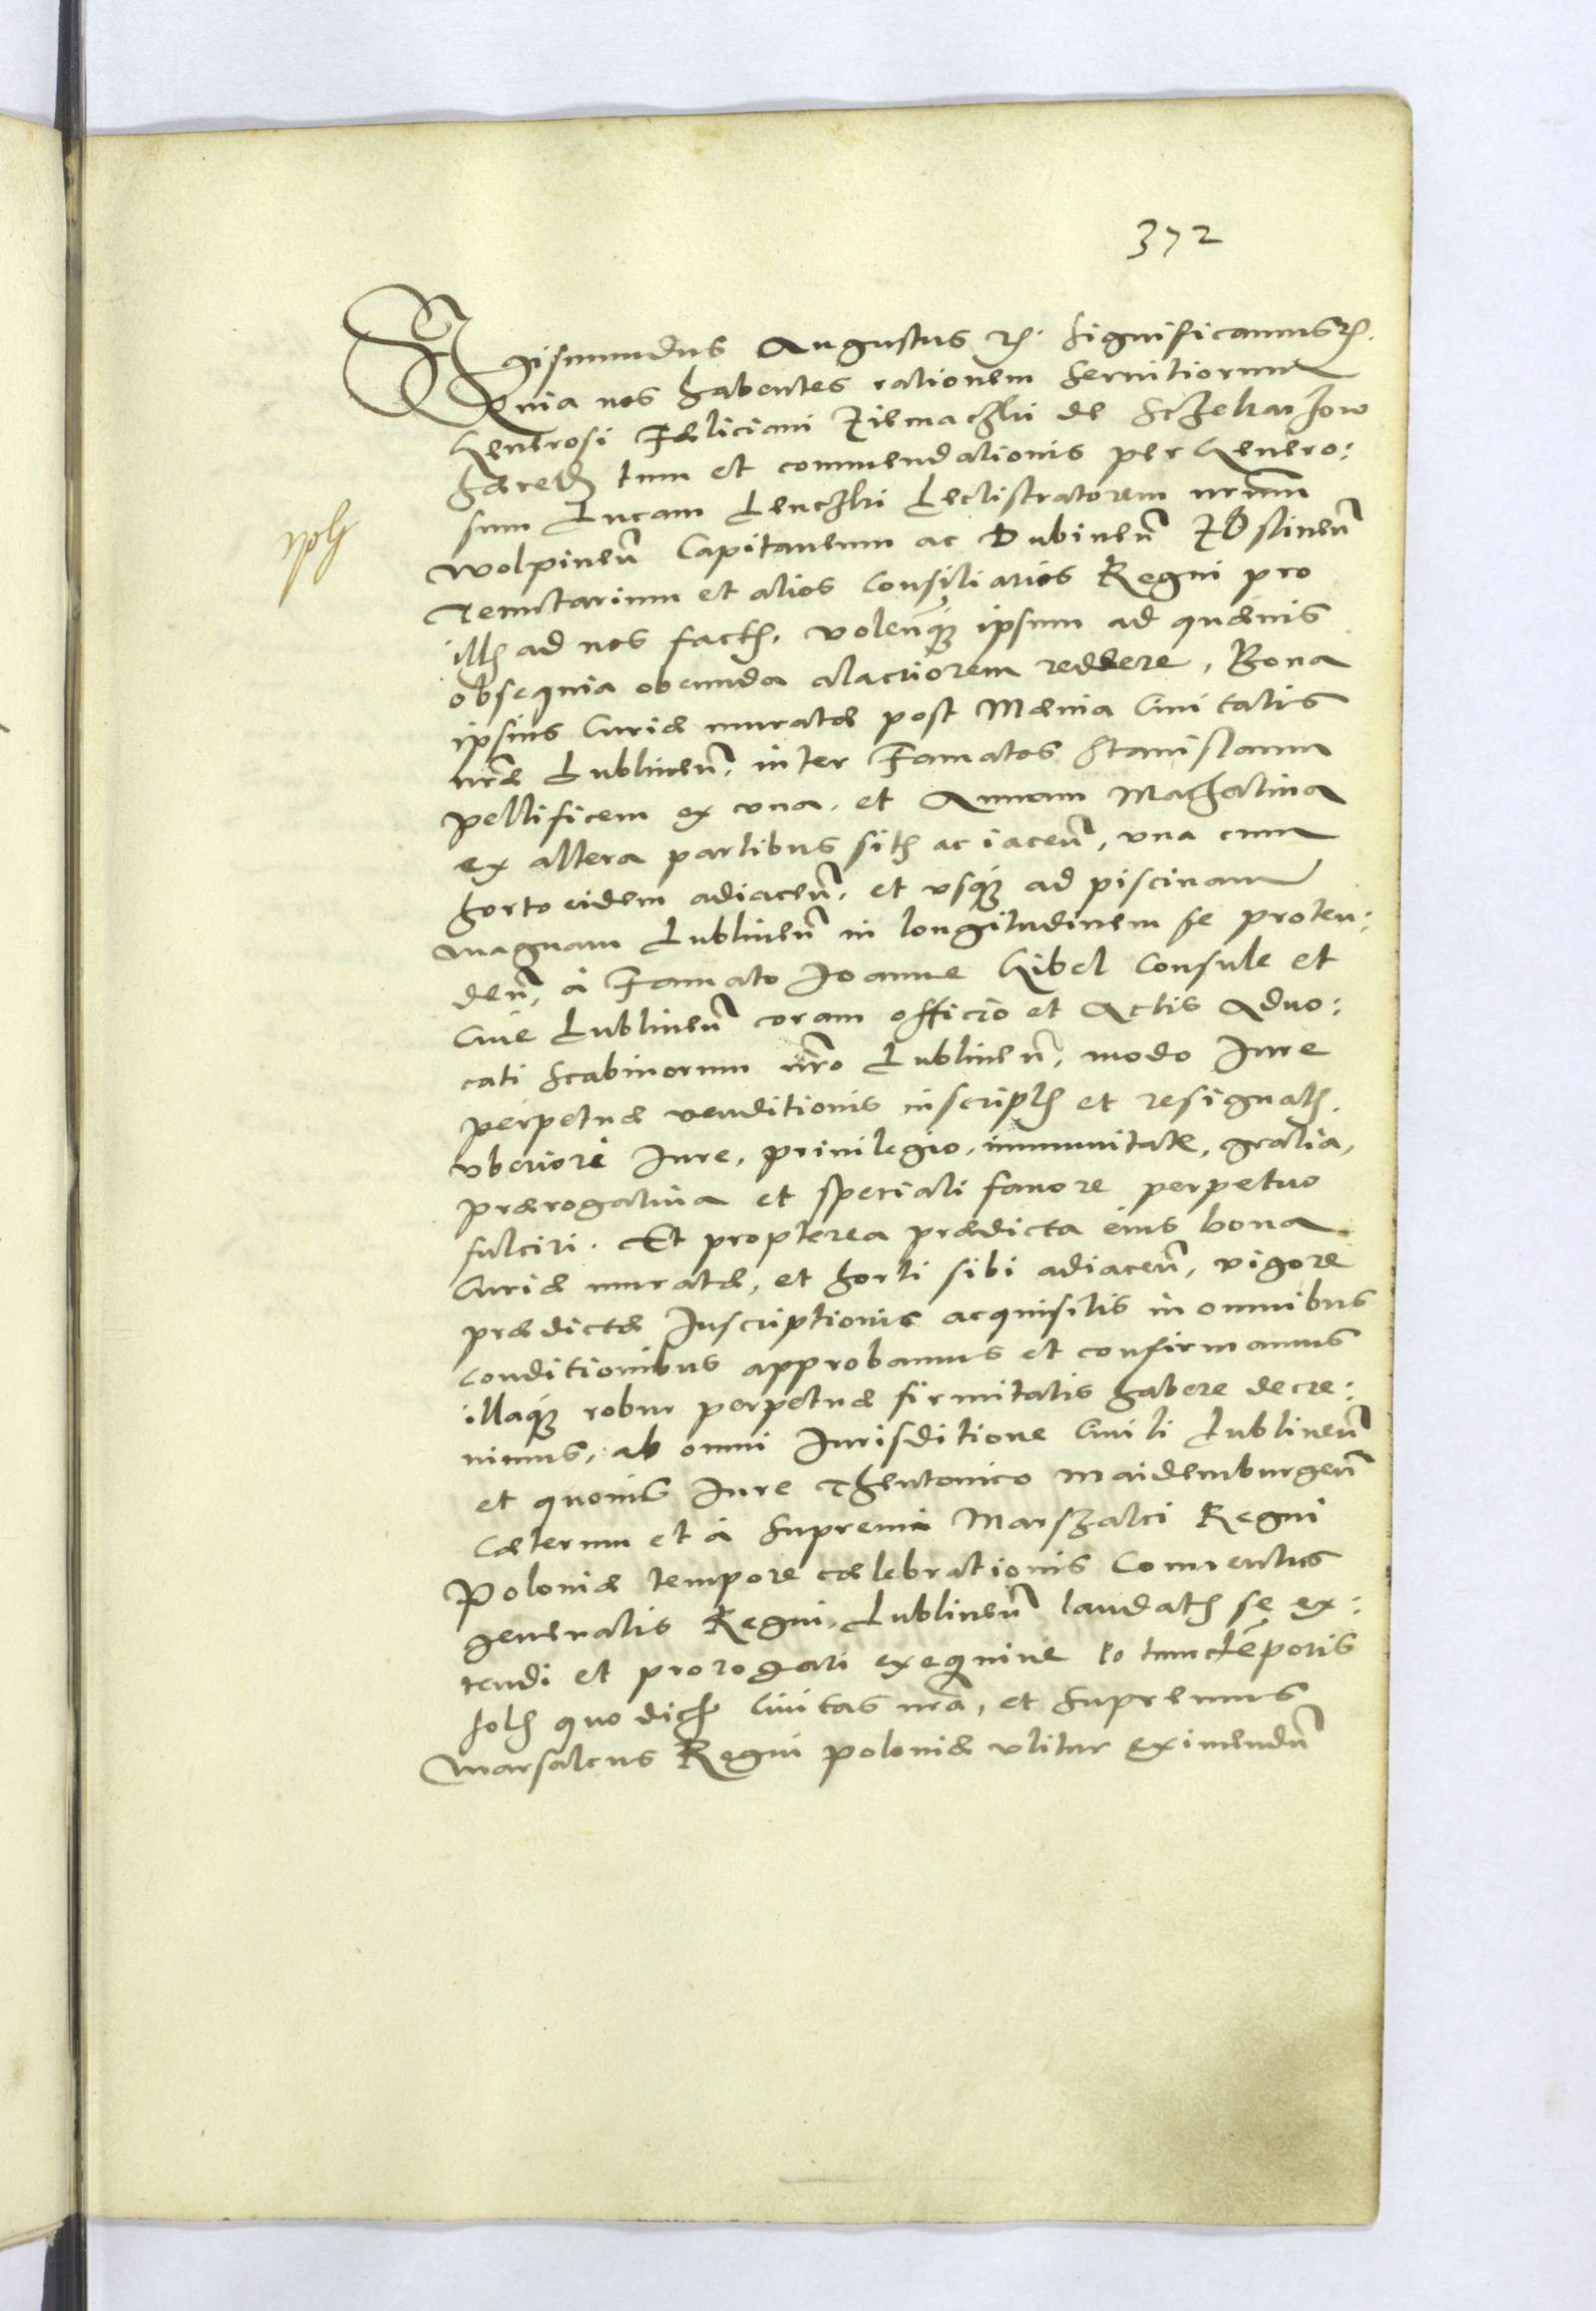 372
Sigismundus Augustus rc. Significamus rc.
Quia nos habentes rationem servitiorum
Generosi Fæliciani Ziemaczki de Sczekarzow
hæred tum et commendationis per Genero:
sum Lucam Lenczki Lectistratorem nrum
wolpineñ Capitaneum ac Dubineñ
Tenutarium et alios Consiliarios Regni pro
ill ad nos fact, volenq ipsum ad quævis
obsequia obeunda alacriorem reddere, Bona
ipsius Curiæ muratæ post Mænia Civitatis
nræ Lublineñ, inter Famatos Stanislaum
pellificem ex vna, et Annam Machalina
ex altera partibus sit ac iaceñ, vna cum
horto eidem adiaceñ, et vsq ad piscinam
magnam Lublineñ in longitudinem se proten:
deñ, à Famato Joanne Kibel Consule et
Cive Lublineñ coram officio et Actis Advo:
cati Scabinorum nro Lublineñ, modo Jure
perpetuæ venditionis inscript et resignat,
vberiore Jure, privilegio, immunitate, gratia,
prærogativa et speciali favore perpetuo
fulciri. Et propterea prædicta eius bona
Curiæ muratæ, et horti sibi adiaceñ, vigore
prædictæ Inscriptionis acquisitis in omnibus
conditionibus approbamus et confirmamus
illaq robur perpetuæ firmitatis habere decre:
nimus, ab omni Jurisditione Civili Lublineñ
et quovis Jure Theutonico Maidemburgeñ
Cæterum et à Supremi Marszalci Regni
Poloniæ tempore cælebrationis Conventus
generalis Regni, Lublineñ laudat se ex:
tendi et prorogari
sol quo dict Civitas nra, et Supremus
Marsalcus Regni poloniæ vtitur eximendũ